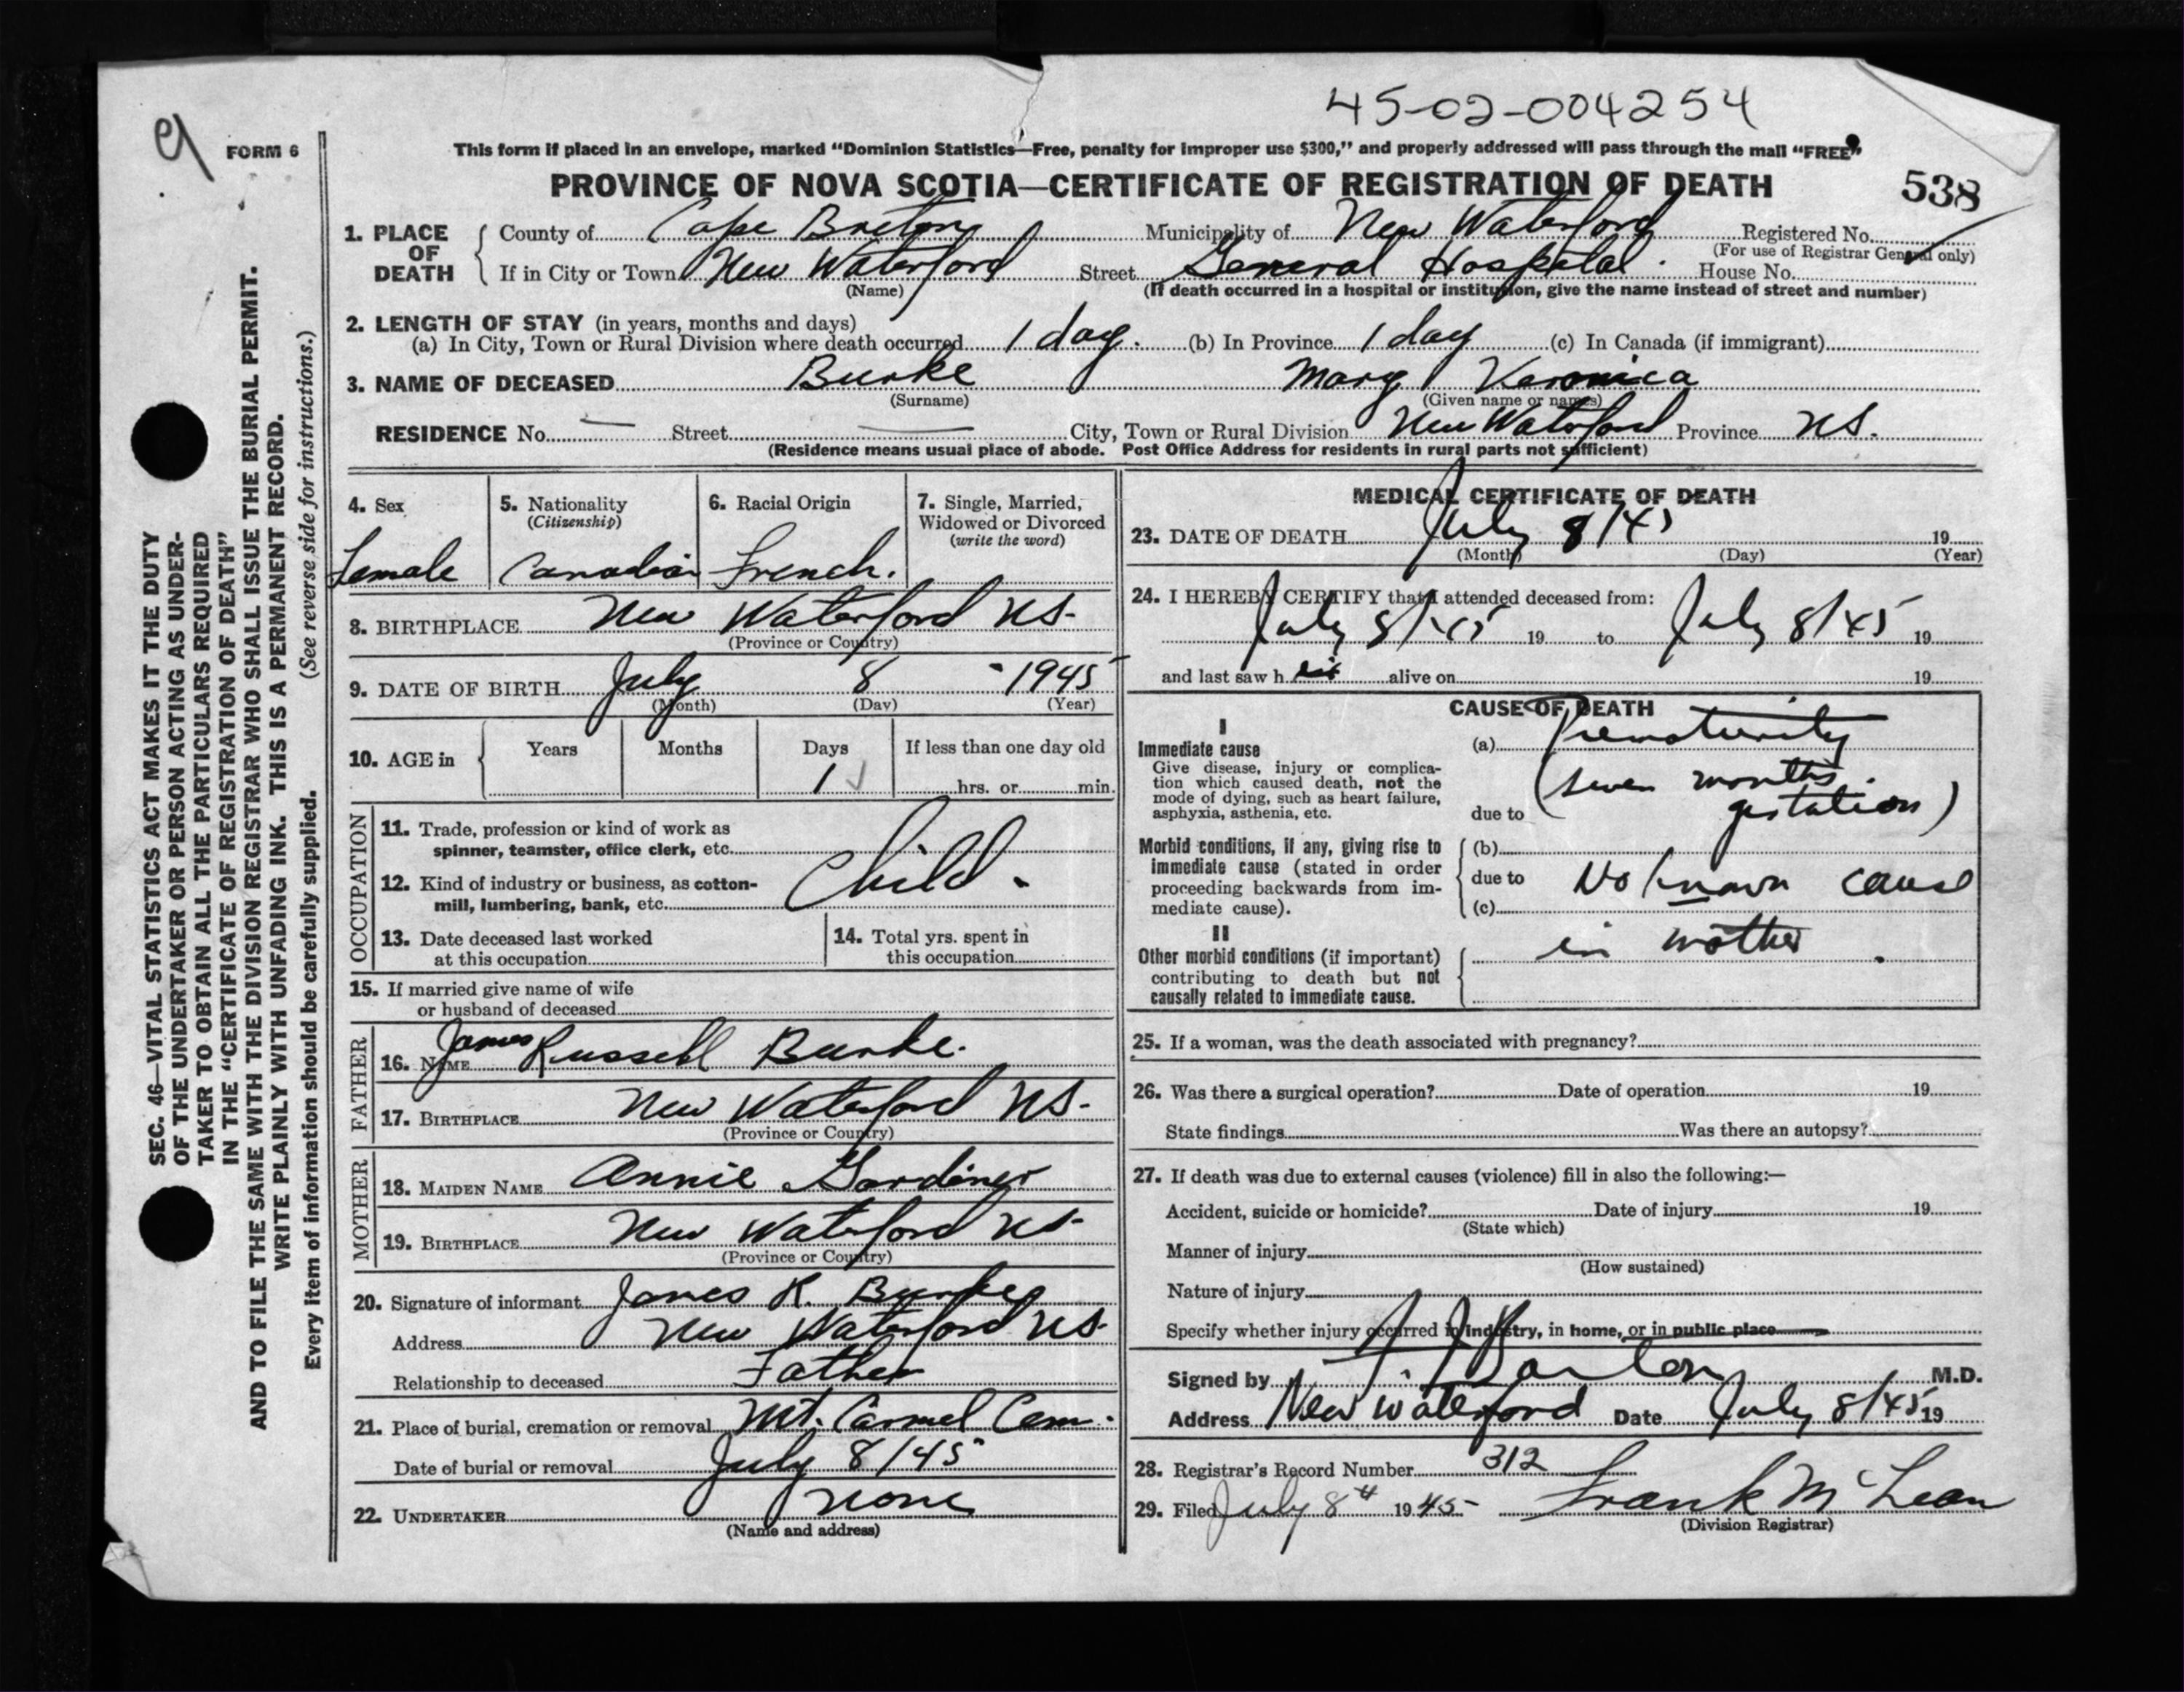 45-02-004254
9
FORM 6
This form if placed in an envelope, marked "Dominion Statistics—Free, penalty for improper use $300," and properly addressed will pass through the mail "FREE"
PROVINCE OF NOVA SCOTIA—CERTIFICATE OF REGISTRATION OF DEATH
538
SEC. 46—VITAL STATISTICS ACT MAKES IT THE DUTY
OF THE UNDERTAKER OR PERSON ACTING AS UNDER-
TAKER TO OBTAIN ALL THE PARTICULARS REQUIRED
IN THE "CERTIFICATE OF REGISTRATION OF DEATH"
AND TO FILE THE SAME WITH THE DIVISION REGISTRAR WHO SHALL ISSUE THE BURIAL PERMIT.
WRITE PLAINLY WITH UNFADING INK. THIS IS A PERMANENT RECORD.
Every item of information should be carefully supplied. (See reverse side for instructions.)
1. PLACE OF DEATH County of Cape Breton Municipality of New Waterford Registered No.
(For use of Registrar General only)
If in City or Town New Waterford Street General Hospital. House No.
(Name) (If death occurred in a hospital or institution, give the name instead of street and number)
2. LENGTH OF STAY (in years, months and days)
(a) In City, Town or Rural Division where death occurred 1 day. (b) In Province 1 day (c) In Canada (if immigrant)
3. NAME OF DECEASED Burke Mary Veronica
(Surname) (Given name or names)
RESIDENCE No. — Street — City, Town or Rural Division New Waterford Province N.S.
(Residence means usual place of abode. Post Office Address for residents in rural parts not sufficient)
4. Sex 5. Nationality 6. Racial Origin 7. Single, Married,
(Citizenship) Widowed or Divorced
(write the word)
Female Canadian French.
8. BIRTHPLACE New Waterford NS.
(Province or Country)
9. DATE OF BIRTH July 8 - 1945
(Month) (Day) (Year)
10. AGE in Years Months Days If less than one day old
1 ✓ hrs. or min.
OCCUPATION
11. Trade, profession or kind of work as
spinner, teamster, office clerk, etc.
12. Kind of industry or business, as cotton-
mill, lumbering, bank, etc. Child.
13. Date deceased last worked 14. Total yrs. spent in
at this occupation this occupation
15. If married give name of wife
or husband of deceased
FATHER
16. NAME James Russell Burke.
17. BIRTHPLACE New Waterford NS.
(Province or Country)
MOTHER
18. MAIDEN NAME Annie Gardiner
19. BIRTHPLACE New Waterford NS.
(Province or Country)
20. Signature of informant James R. Burke
Address New Waterford NS.
Relationship to deceased Father
21. Place of burial, cremation or removal Mt. Carmel Cem.
Date of burial or removal July 8/45
22. UNDERTAKER None
(Name and address)
MEDICAL CERTIFICATE OF DEATH
23. DATE OF DEATH July 8/45 19
(Month) (Day) (Year)
24. I HEREBY CERTIFY that I attended deceased from:
July 8/45 19 to July 8/45 19
and last saw h alive on 19
CAUSE OF DEATH
I
Immediate cause (a) Prematurity
Give disease, injury or complica-
tion which caused death, not the
mode of dying, such as heart failure,
asphyxia, asthenia, etc.
(seven months.
due to gestation)
Morbid conditions, if any, giving rise to (b)
immediate cause (stated in order
proceeding backwards from im-
mediate cause).
due to No known cause
(c)
II
Other morbid conditions (if important) in mother.
contributing to death but not
causally related to immediate cause.
25. If a woman, was the death associated with pregnancy?
26. Was there a surgical operation? Date of operation 19
State findings Was there an autopsy?
27. If death was due to external causes (violence) fill in also the following:—
Accident, suicide or homicide? Date of injury 19
(State which)
Manner of injury
(How sustained)
Nature of injury
Specify whether injury occurred in industry, in home, or in public place
Signed by M.D.
Address New Waterford Date July 8/45 19
28. Registrar's Record Number 312
29. Filed July 8th 1945- Frank McLean
(Division Registrar)